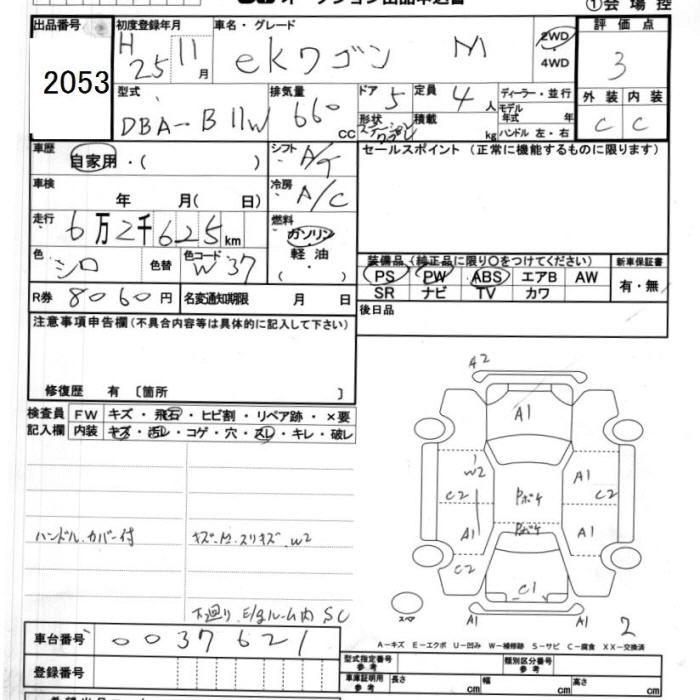 オークション出品申込書
①会場控
出品番号 初度登録年月 車名・グレード 評価点
2053
H 25 11月 ekワゴン M 2WD 4WD 3
型式 排気量 ドア 定員 ディーラー・並行 外装 内装
DBA-B11W 660cc 5 4人 モデル年式 年 C C
形状 ステーションワゴン 積載 kg ハンドル 左・右
車歴 自家用・( ) シフト A/T セールスポイント (正常に機能するものに限ります)
車検 年 月( 日) 冷房 A/C
走行 6万2千625km 燃料 ガソリン・軽油・( )
色 シロ 色替 色コード W37
装備品 (純正品に限り〇をつけてください) 新車保証書
PS PW ABS エアB AW 有・無
SR ナビ TV カワ
R券 8060円 名変通知期限 月 日 後日品
注意事項申告欄(不具合内容等は具体的に記入して下さい)
修復歴 有 〔箇所 〕
検査員 FW キズ・飛石・ヒビ割・リペア跡・×要
記入欄 内装 キズ・汚レ・コゲ・穴・スレ・キレ・破レ
ハンドル.カバー付 キズ.M.スリキズ.W2
下廻り.E/gルーム内 SC
A2
A1
W2 A1
C2 Pボケ C2
Pボケ
A1 A1
C2
C1
スペア A1 A1
2
A-キズ E-エクボ U-凹み W-補修跡 S-サビ C-腐食 XX-交換済
車台番号 0037621
型式指定番号 参考 類別区分番号 参考
登録番号
車庫証明用 参考 長さ cm 幅 cm 高さ cm